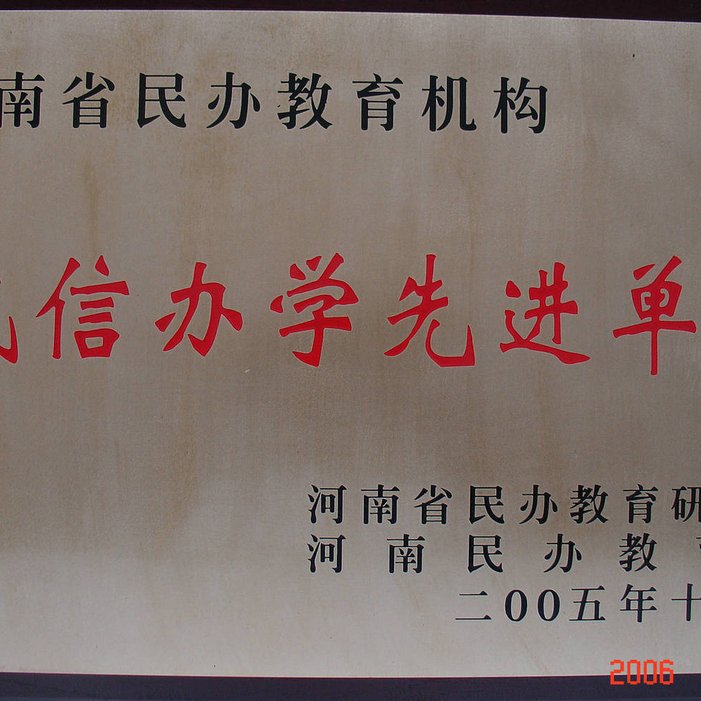 南省民办教育机构
信办学先进单
河南省民办教育研
河南民办教
二00五年十
2006